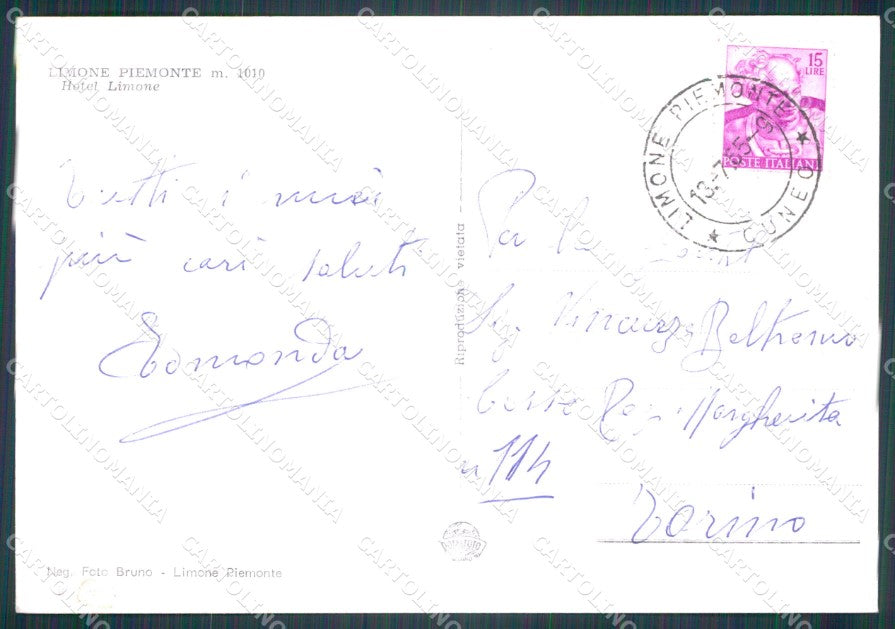 LIMONE PIEMONTE m. 1010
Hotel Limone
15
LIRE
POSTE ITALIANE
LIMONE PIEMONTE
CUNEO
13-7.65
Tutti i miei
più cari saluti
Edmonda
Riproduzioni vietata
Sig. Vincenzo Beltramo
Corso Reg. Margherita
n 114
Torino
Neg. Foto Bruno - Limone Piemonte
CARTOLINOMANIA